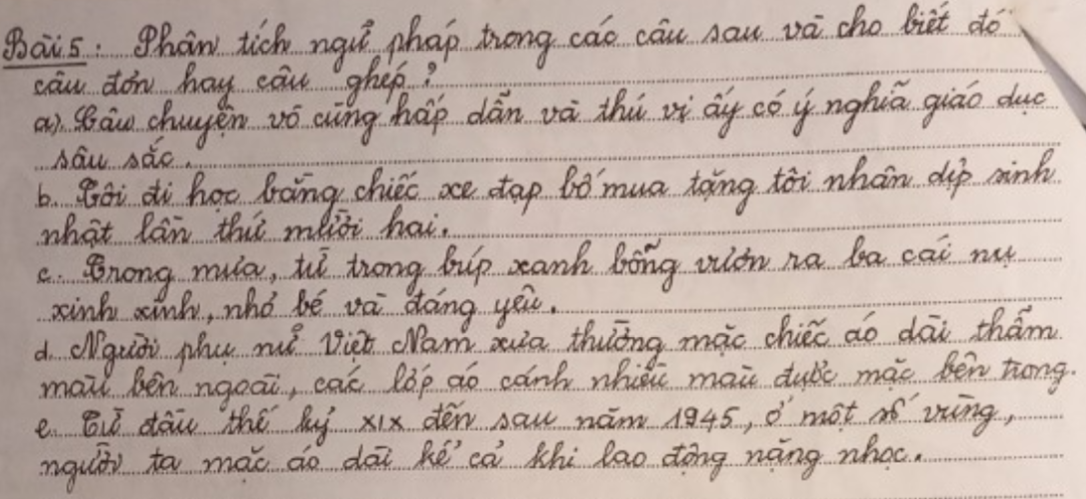 Bài 5: Phân tích ngữ pháp trong các câu sau và cho biết đó
câu đơn hay câu ghép?
a). Câu chuyện vô cùng hấp dẫn và thú vị ấy có ý nghĩa giáo dục
sâu sắc.
b. Tôi đi học bằng chiếc xe đạp bố mua tặng tôi nhân dịp sinh
nhật lần thứ mười hai.
c. Trong mưa, từ trong búp xanh bỗng vươn ra ba cái nụ
xinh xinh, nhỏ bé và đáng yêu.
d. Người phụ nữ Việt Nam xưa thường mặc chiếc áo dài thẫm
màu bên ngoài, các lớp áo cánh nhiều màu được mặc bên trong.
e. Từ đầu thế kỷ XIX đến sau năm 1945, ở một số vùng,
người ta mặc áo dài kể cả khi lao động nặng nhọc.